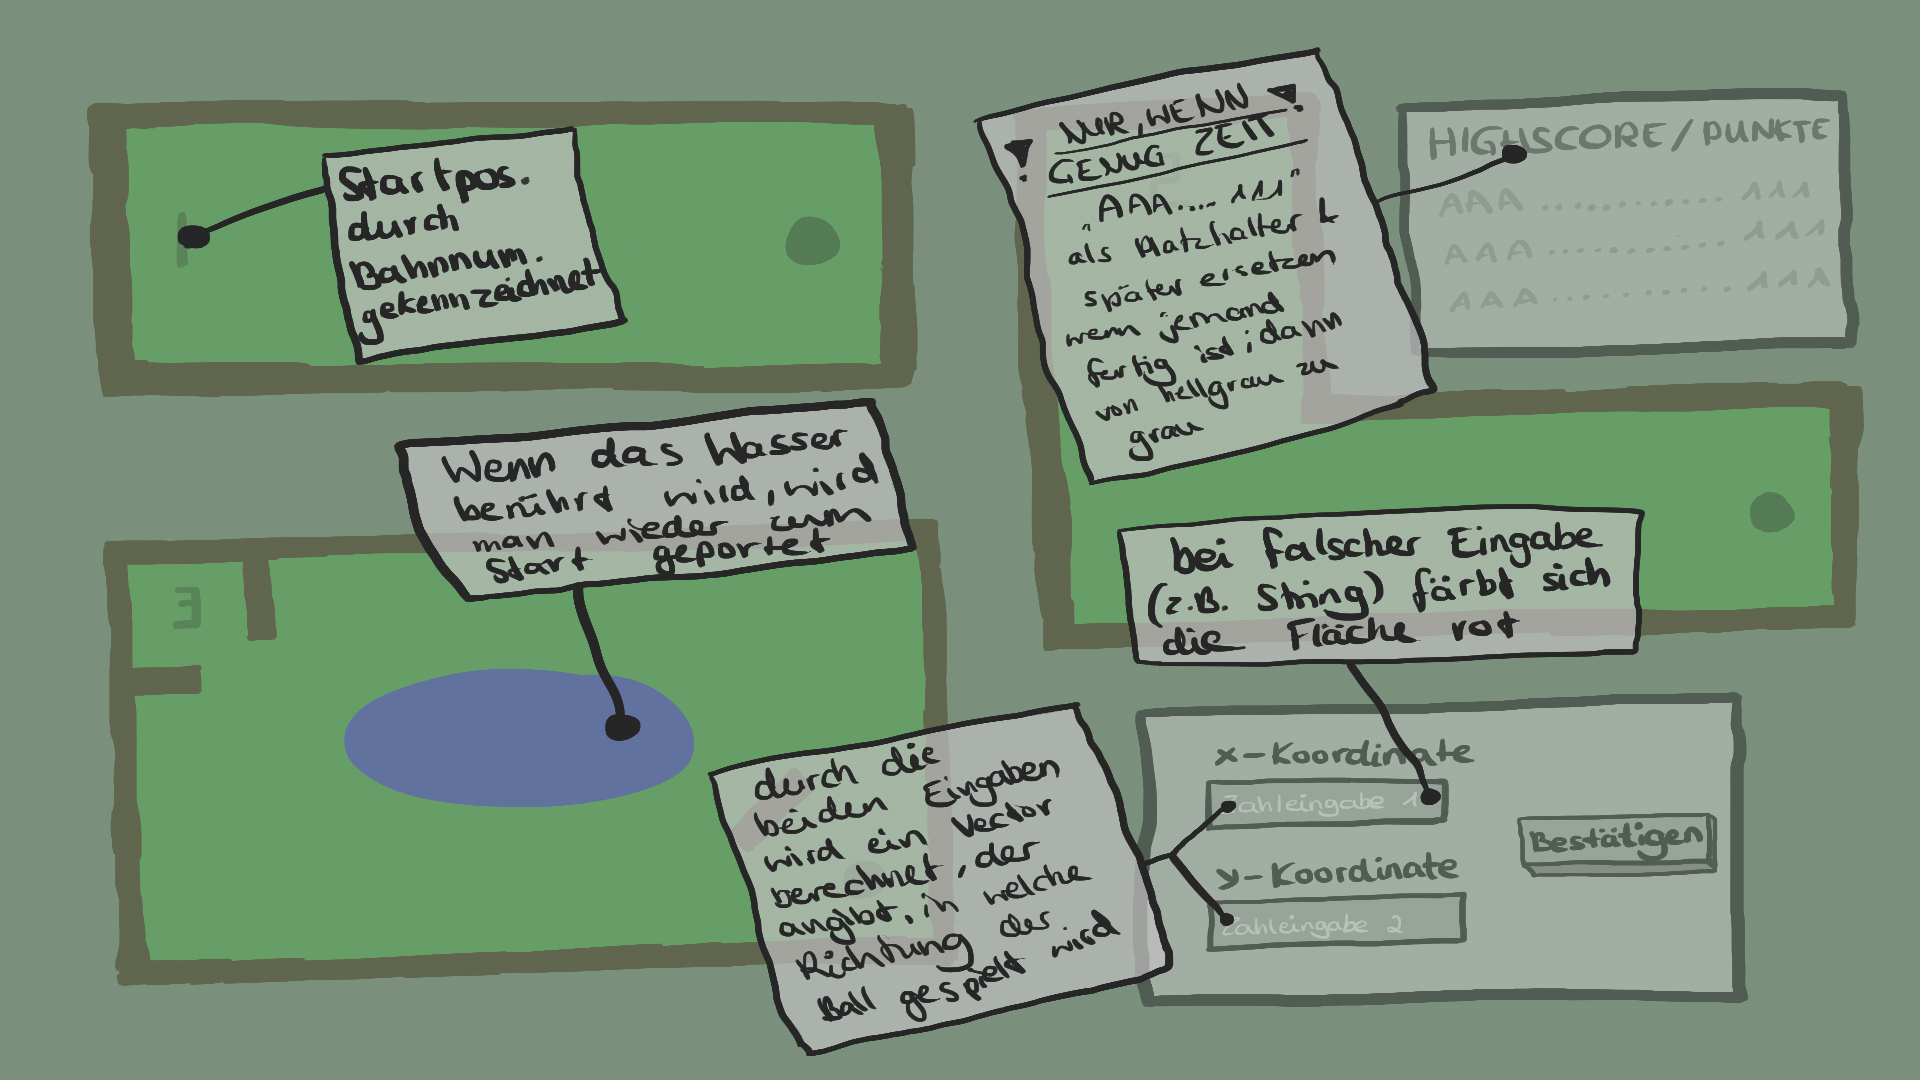 1
Startpos.
durch
Bahnnum.
gekennzeichnet
NUR, WENN
GENUG ZEIT
"AAA.... 111"
als Platzhalter &
später ersetzen
wenn jemand
fertig ist; dann
von hellgrau zu
grau
HIGHSCORE/PUNKTE
AAA ............ 111
AAA ............ 111
AAA ............ 111
Wenn das Wasser
berührt wird, wird
man wieder zum
Start geportet
3
bei falscher Eingabe
(z.B. String) färbt sich
die Fläche rot
durch die
beiden Eingaben
wird ein Vector
berechnet, der
angibt, in welche
Richtung der
Ball gespielt wird
x-Koordinate
Zahleingabe 1
y-Koordinate
Zahleingabe 2
Bestätigen